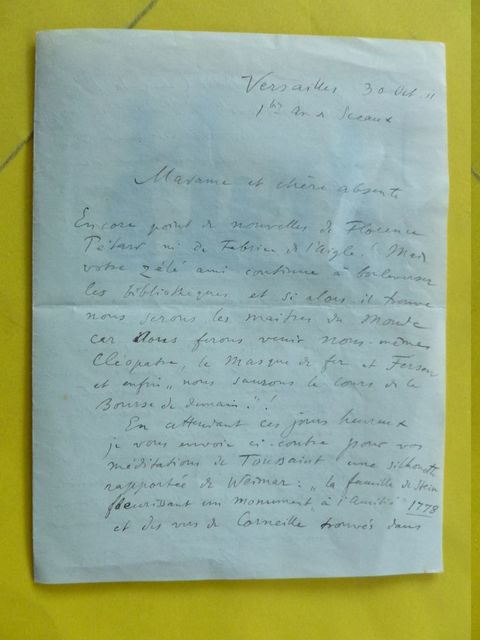 Versailles 30 Oct. 11
1bis av de Sceaux
Madame et chère absente
Encore point de nouvelles de Florence
ni de Fabrice de l'Aigle! Mais
votre zélé ami continue à bouleverser
les bibliothèques et si alors il trouve
nous serons les maîtres du Monde
car nous ferons venir nous-mêmes
Cléopatre, le Masque de fer et Fersen
et enfin "nous saurons le cours de la
Bourse de demain"!
En attendant ces jours heureux
je vous envoie ci-contre pour vos
méditations de Toussaint une silhouette
rapportée de Weimar: "la famille de Stein
fleurissant un monument à l'Amitié" 1778
et des vers de Corneille trouvés dans